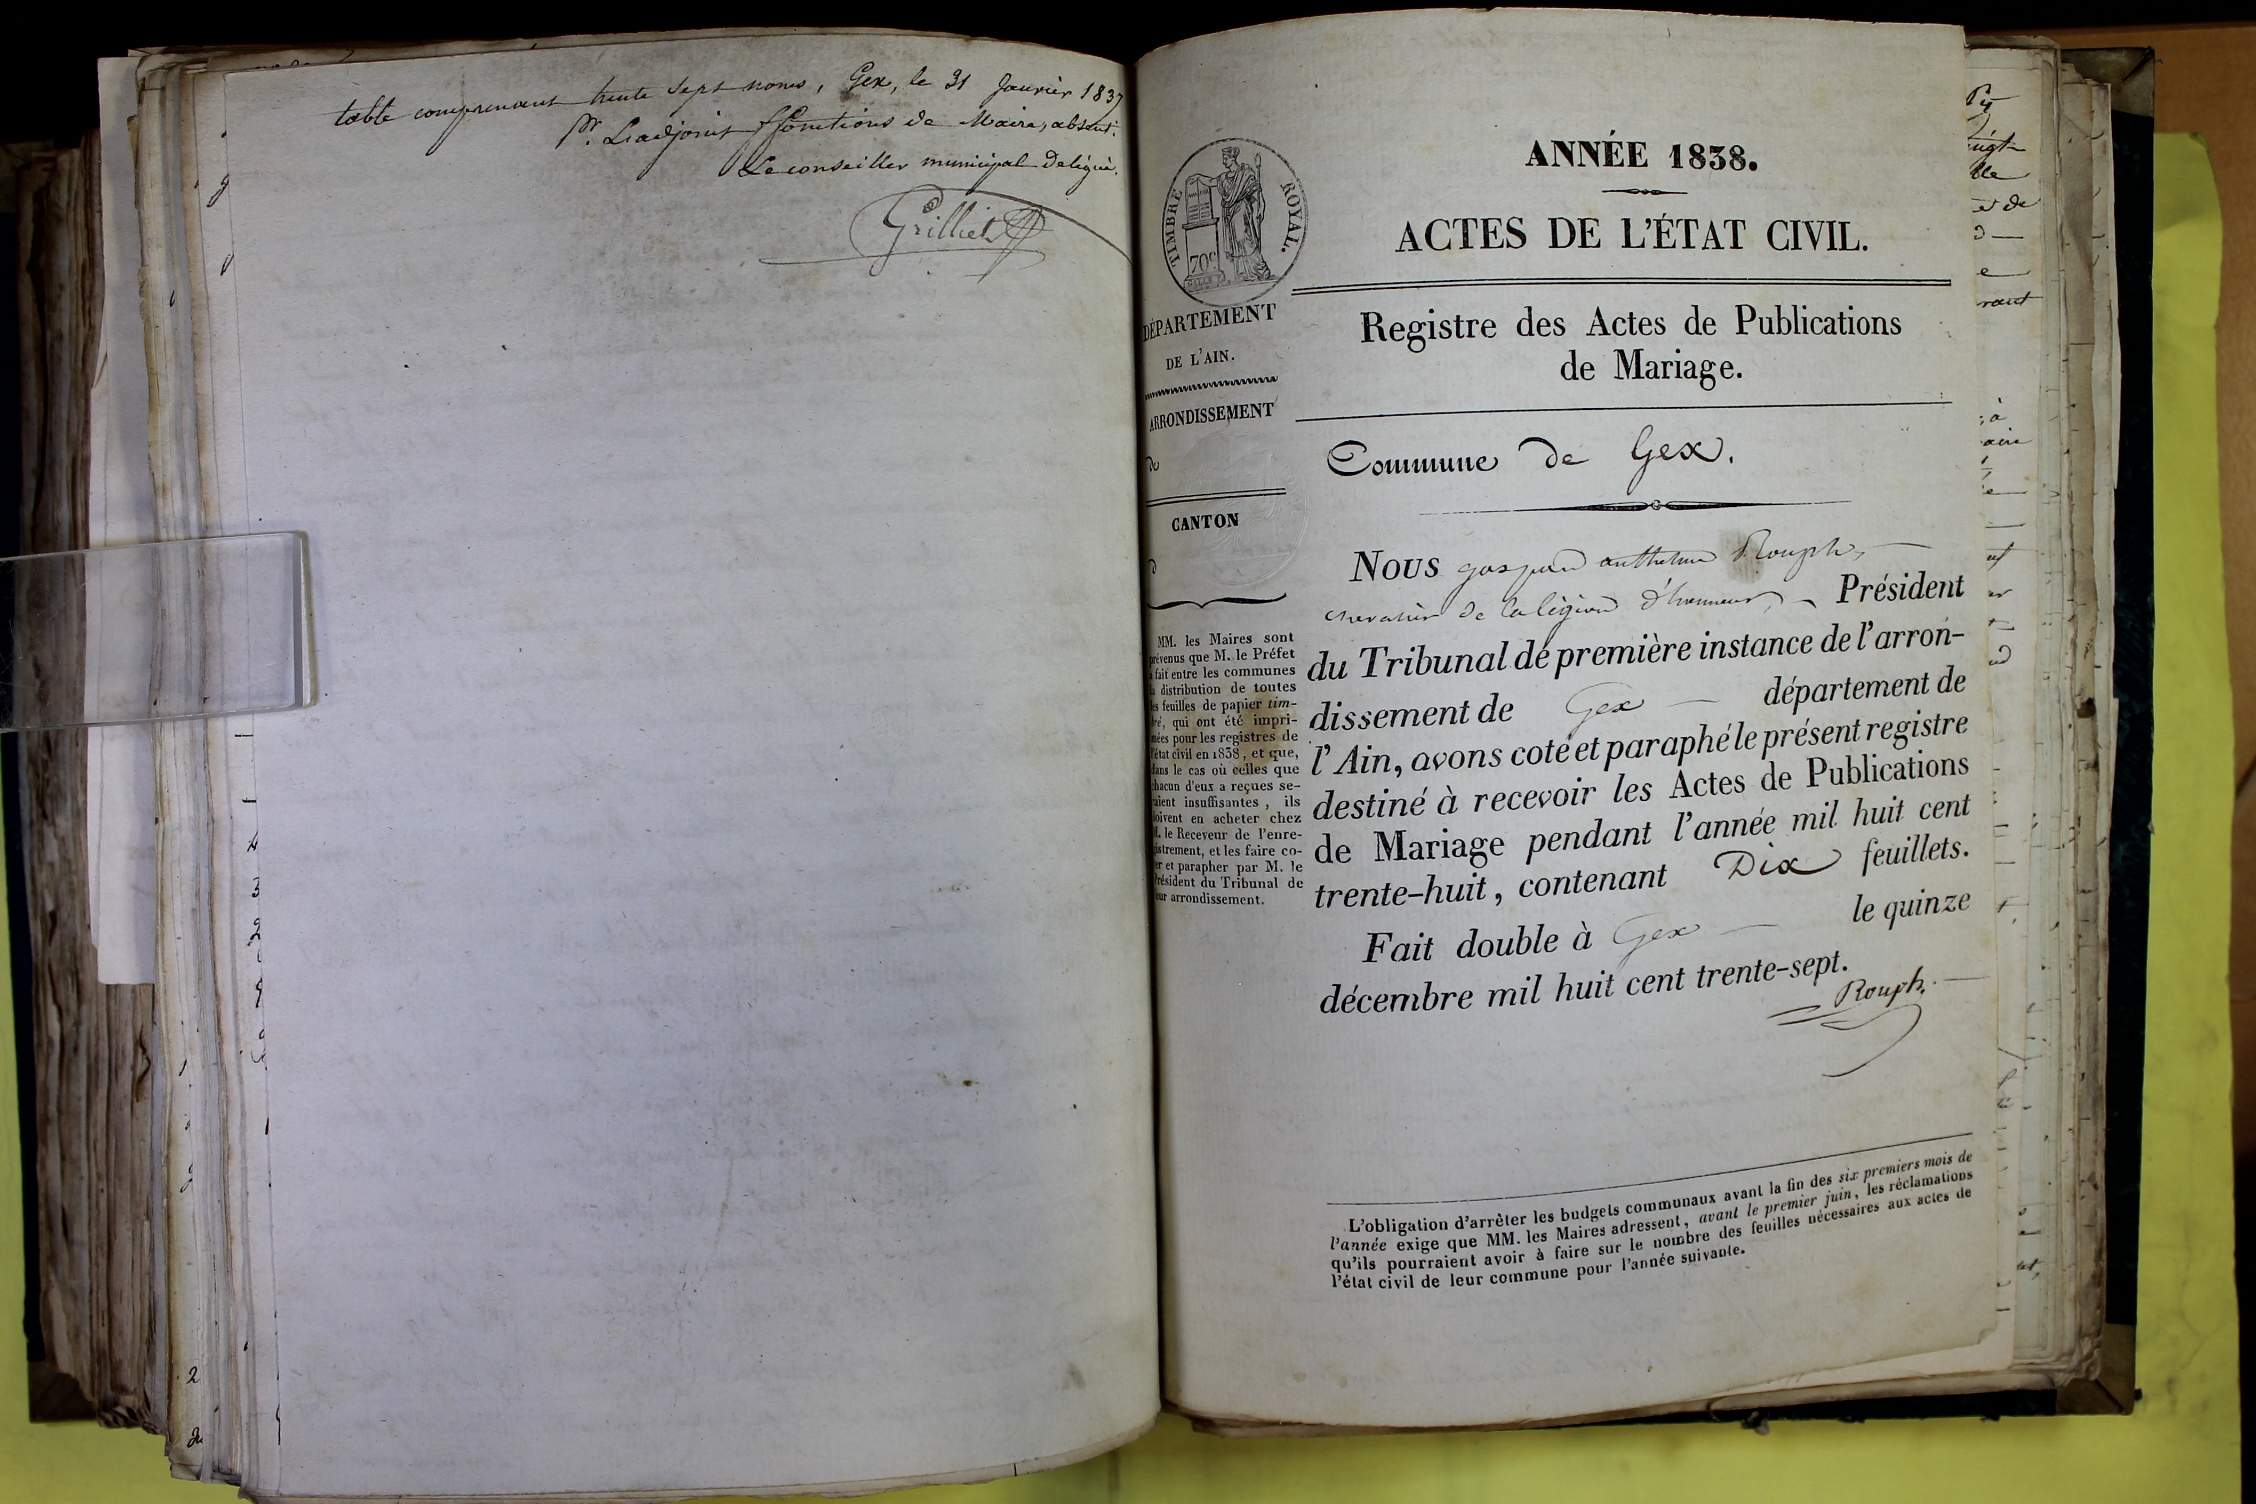 table comprenant trente sept noms, Gex, le 31 Janvier 1837
Pr. L'adjoint ffonctions de Maire, absent.
Le conseiller municipal délégué.
Grilliet
TIMBRE ROYAL.
70c
DÉPARTEMENT
DE L'AIN.
ARRONDISSEMENT
de
CANTON
d
MM. les Maires sont
prévenus que M. le Préfet
a fait entre les communes
la distribution de toutes
les feuilles de papier tim-
bré, qui ont été impri-
mées pour les registres de
l'état civil en 1838, et que,
dans le cas où celles que
chacun d'eux a reçues se-
raient insuffisantes, ils
doivent en acheter chez
M. le Receveur de l'enre-
gistrement, et les faire co-
ter et parapher par M. le
Président du Tribunal de
leur arrondissement.
ANNÉE 1838.
ACTES DE L'ÉTAT CIVIL.
Registre des Actes de Publications
de Mariage.
Commune de Gex.
Nous gaspard anthelme Rouph,
chevalier de la légion d'honneur, Président
du Tribunal de première instance de l'arron-
dissement de Gex département de
l'Ain, avons coté et paraphé le présent registre
destiné à recevoir les Actes de Publications
de Mariage pendant l'année mil huit cent
trente-huit, contenant Dix feuillets.
Fait double à Gex le quinze
décembre mil huit cent trente-sept.
Rouph.
L'obligation d'arrêter les budgets communaux avant la fin des six premiers mois de
l'année exige que MM. les Maires adressent, avant le premier juin, les réclamations
qu'ils pourraient avoir à faire sur le nombre des feuilles nécessaires aux actes de
l'état civil de leur commune pour l'année suivante.